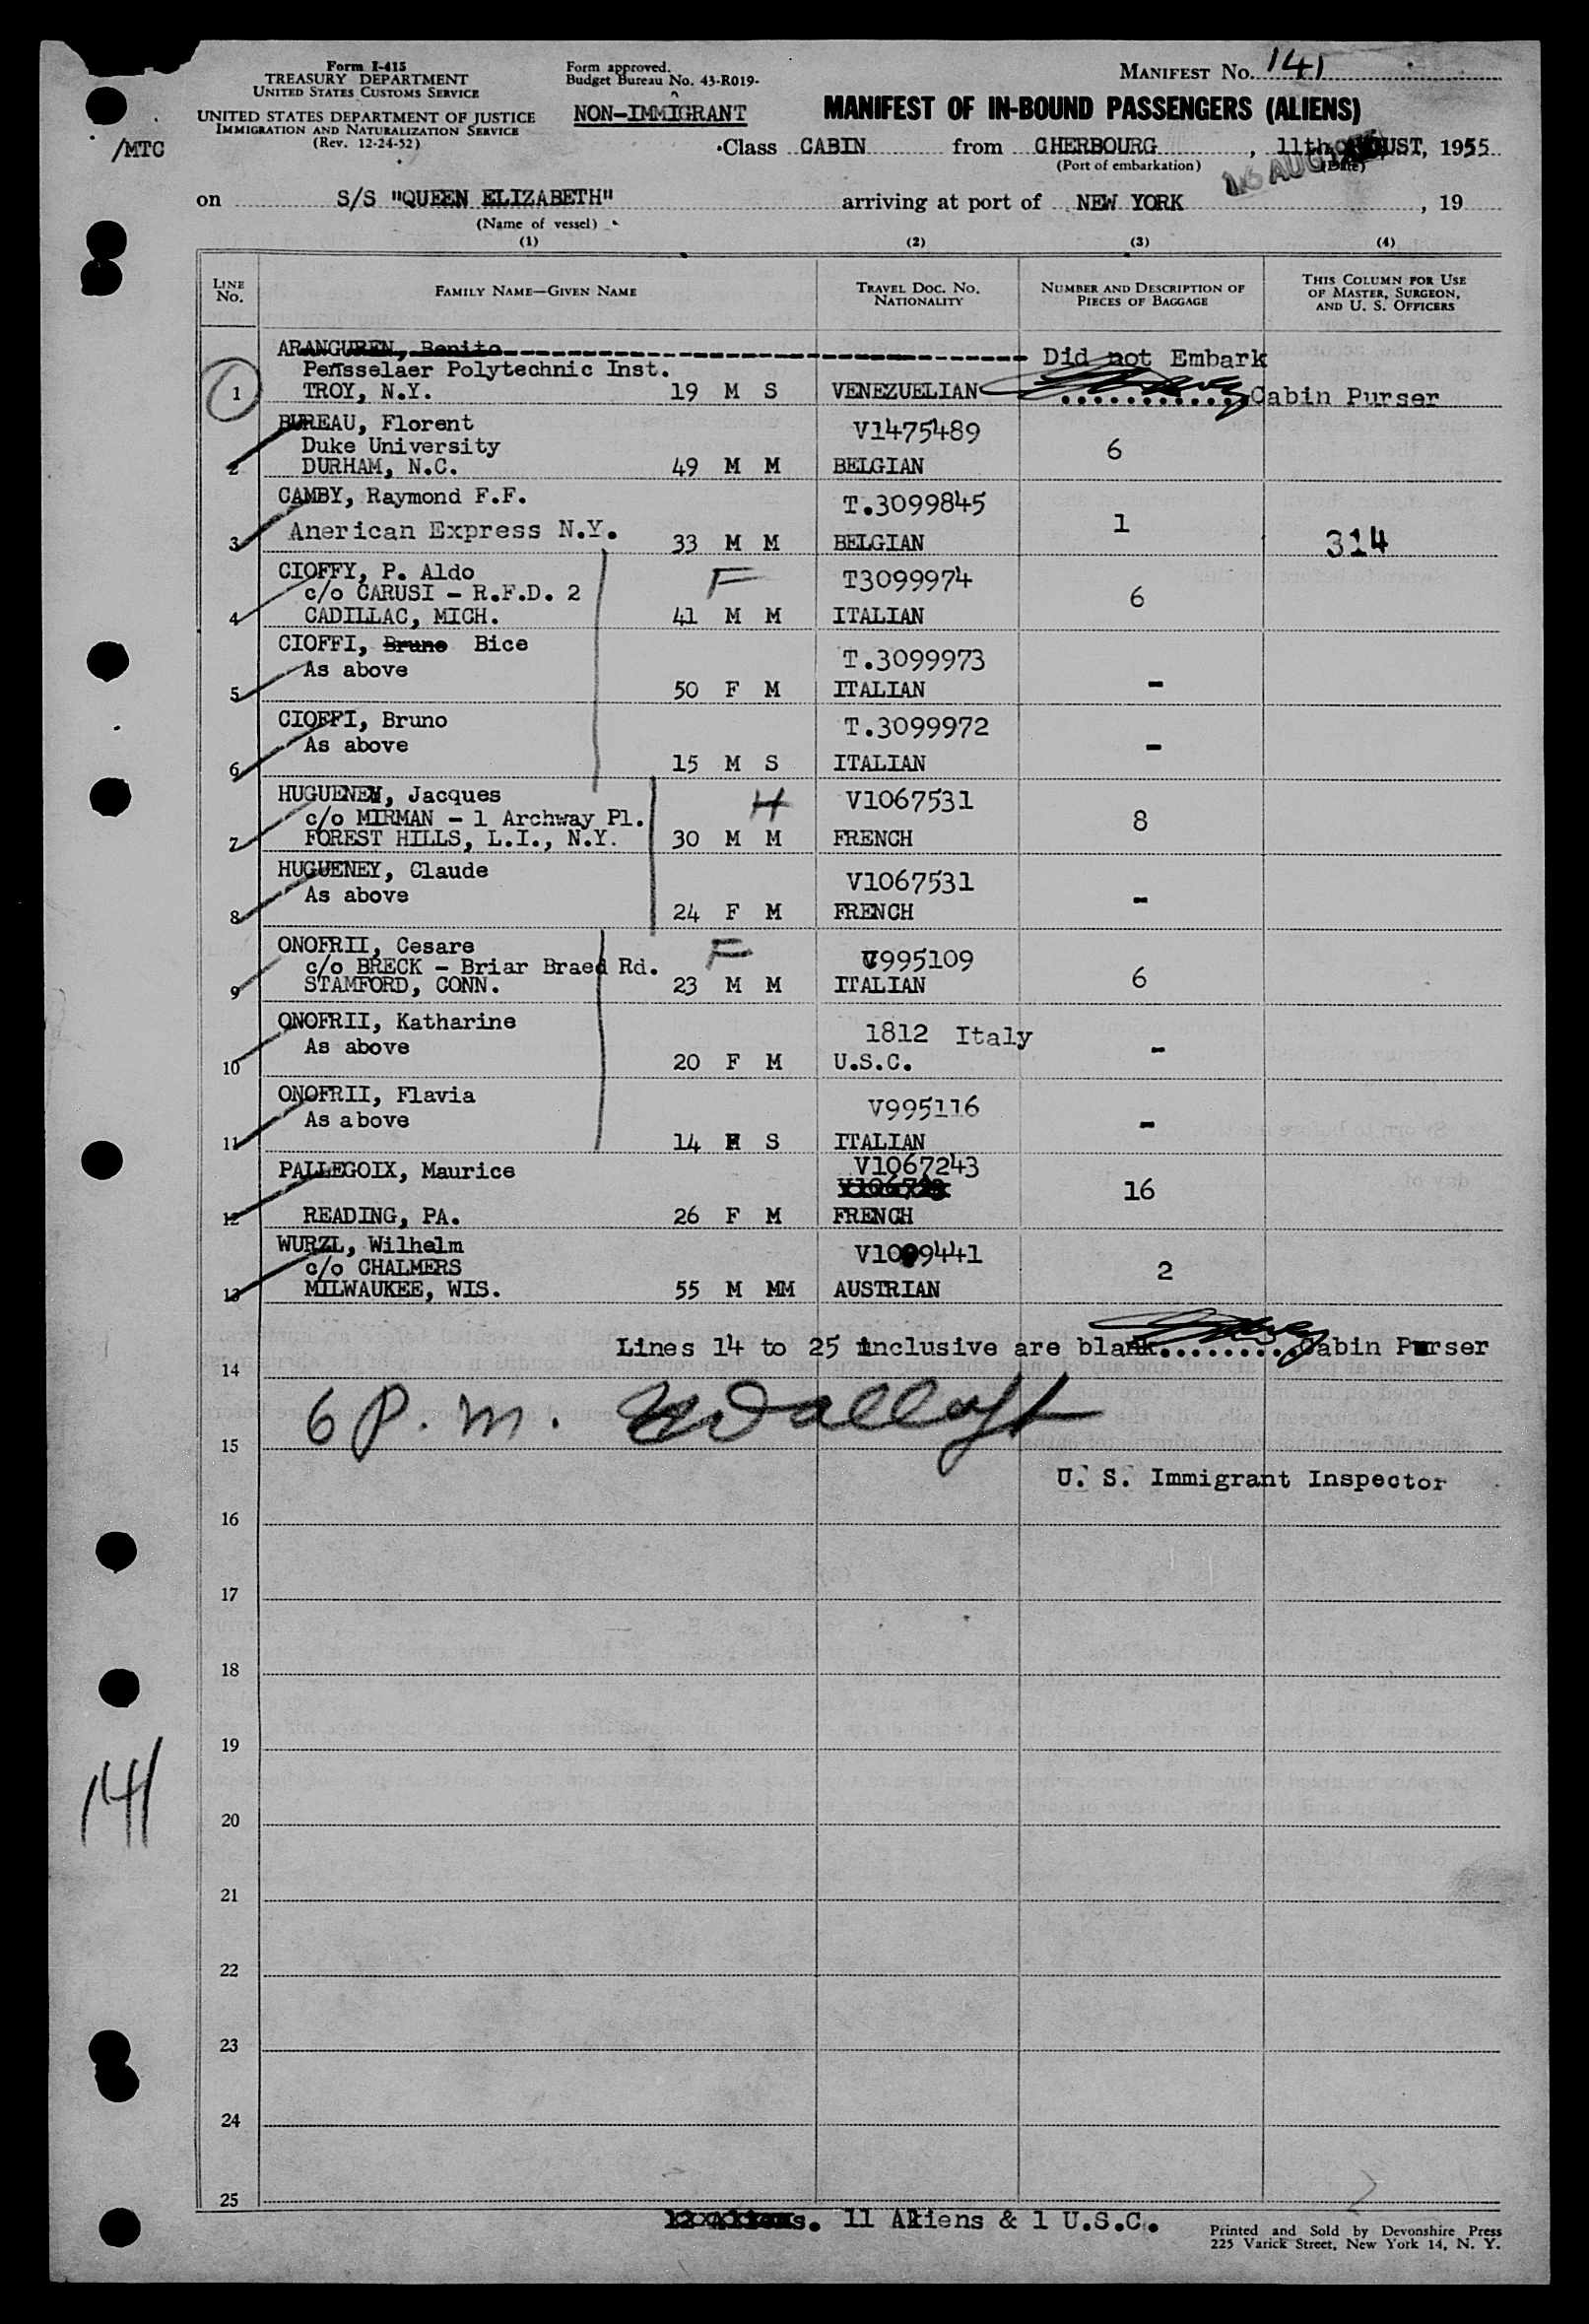 Form I-415
TREASURY DEPARTMENT
UNITED STATES CUSTOMS SERVICE
UNITED STATES DEPARTMENT OF JUSTICE
IMMIGRATION AND NATURALIZATION SERVICE
(Rev. 12-24-52)
/MTC
Form approved.
Budget Bureau No. 43-R019-
NON-IMMIGRANT
MANIFEST NO. 141
MANIFEST OF IN-BOUND PASSENGERS (ALIENS)
Class CABIN from CHERBOURG, 11th AUGUST, 1955
(Port of embarkation) (Date)
16 AUG
on S/S "QUEEN ELIZABETH" arriving at port of NEW YORK, 19
(Name of vessel)
(1) (2) (3) (4)
LINE NO. FAMILY NAME—GIVEN NAME TRAVEL DOC. NO. NATIONALITY NUMBER AND DESCRIPTION OF PIECES OF BAGGAGE THIS COLUMN FOR USE OF MASTER, SURGEON, AND U. S. OFFICERS
ARANGUREN, Benito Did not Embark
Pensselaer Polytechnic Inst.
1 TROY, N.Y. 19 M S VENEZUELIAN Cabin Purser
BUREAU, Florent V1475489
Duke University 6
2 DURHAM, N.C. 49 M M BELGIAN
CAMBY, Raymond F.F. T.3099845
Anerican Express N.Y. 1
3 33 M M BELGIAN 314
CIOFFY, P. Aldo F T3099974
c/o CARUSI - R.F.D. 2 6
4 CADILLAC, MICH. 41 M M ITALIAN
CIOFFI, Bruno Bice T.3099973
As above
5 50 F M ITALIAN -
CIOFFI, Bruno T.3099972
As above -
6 15 M S ITALIAN
HUGUENEY, Jacques H V1067531
c/o MIRMAN - 1 Archway Pl. 8
7 FOREST HILLS, L.I., N.Y. 30 M M FRENCH
HUGUENEY, Claude V1067531
As above -
8 24 F M FRENCH
ONOFRII, Cesare F V995109
c/o BRECK - Briar Braed Rd. 6
9 STAMFORD, CONN. 23 M M ITALIAN
ONOFRII, Katharine 1812 Italy
As above -
10 20 F M U.S.C.
ONOFRII, Flavia V995116
As above -
11 14 F S ITALIAN
PALLEGOIX, Maurice V1067243
16
12 READING, PA. 26 F M FRENCH
WURZL, Wilhelm V1099441
c/o CHALMERS 2
13 MILWAUKEE, WIS. 55 M MM AUSTRIAN
Lines 14 to 25 inclusive are blank. Cabin Purser
14
6 P. m.
15
U. S. Immigrant Inspector
16
17
18
19
141
20
21
22
23
24
25
12 Aliens. 11 Aliens & 1 U.S.C.
Printed and Sold by Devonshire Press
225 Varick Street, New York 14, N. Y.